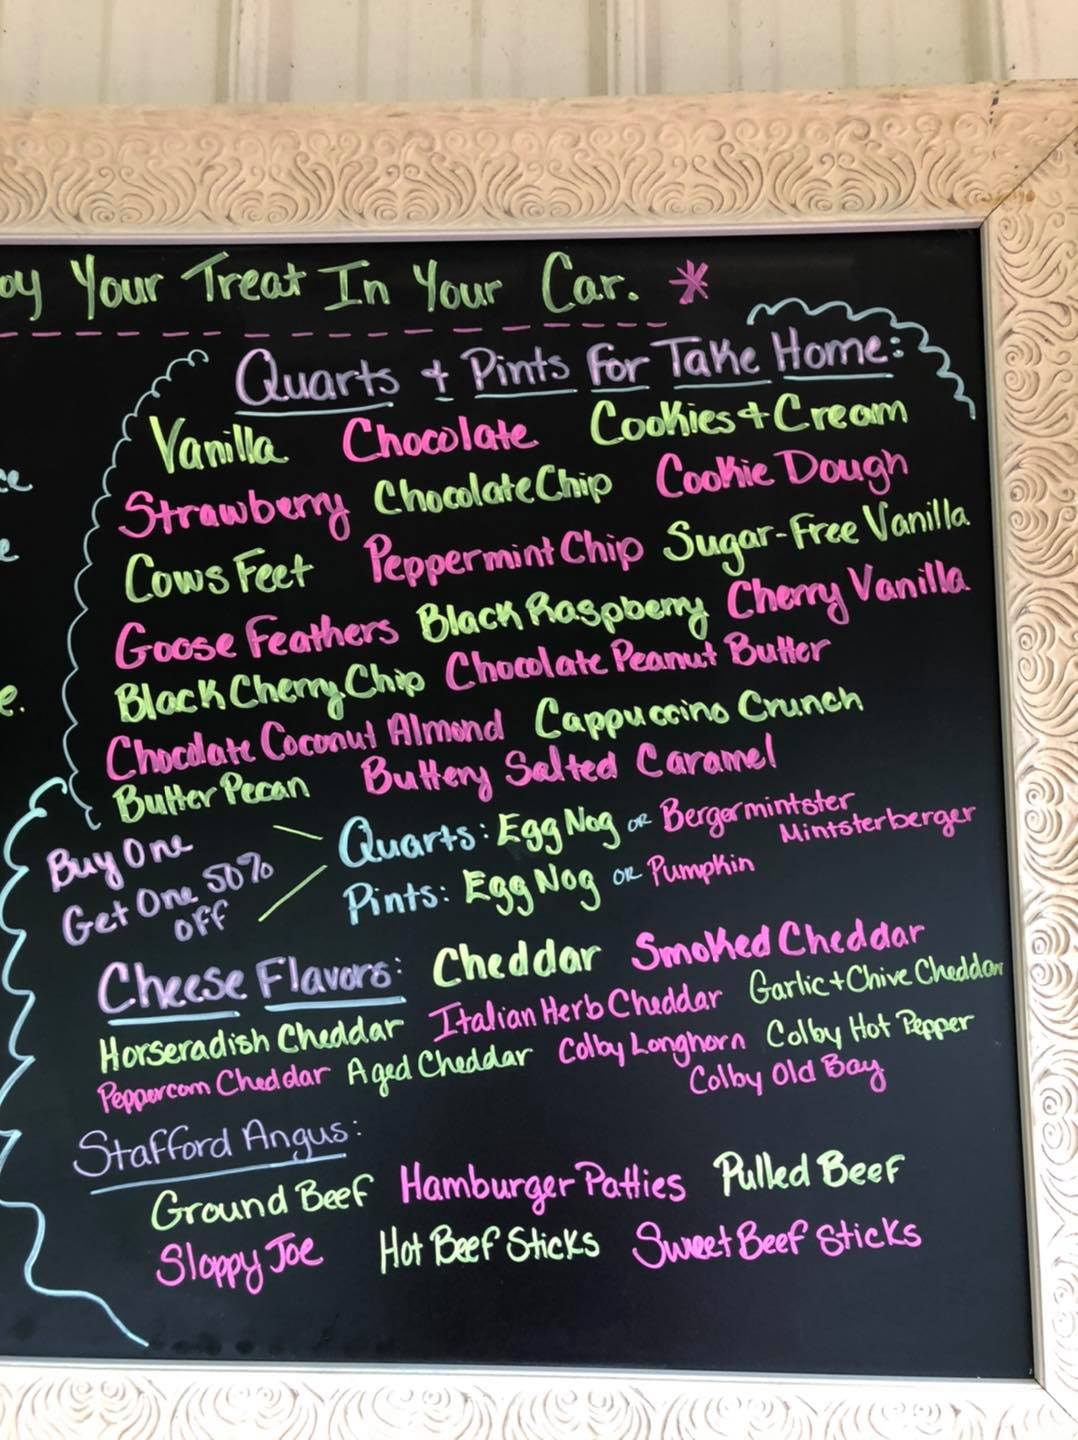 oy Your Treat In Your Car. *
Quarts + Pints For Take Home:
Vanilla Chocolate Cookies + Cream
Strawberry Chocolate Chip Cookie Dough
Cows Feet Peppermint Chip Sugar-Free Vanilla
Goose Feathers Black Raspberry Cherry Vanilla
Black Cherry Chip Chocolate Peanut Butter
Chocolate Coconut Almond Cappuccino Crunch
Butter Pecan Buttery Salted Caramel
Buy One
Get One 50%
off
Quarts: Egg Nog or Bergermintster
Mintsterberger
Pints: Egg Nog or Pumpkin
Cheese Flavors: Cheddar Smoked Cheddar
Horseradish Cheddar Italian Herb Cheddar Garlic + Chive Cheddar
Peppercorn Cheddar Aged Cheddar Colby Longhorn Colby Hot Pepper
Colby Old Bay
Stafford Angus:
Ground Beef Hamburger Patties Pulled Beef
Sloppy Joe Hot Beef Sticks Sweet Beef Sticks